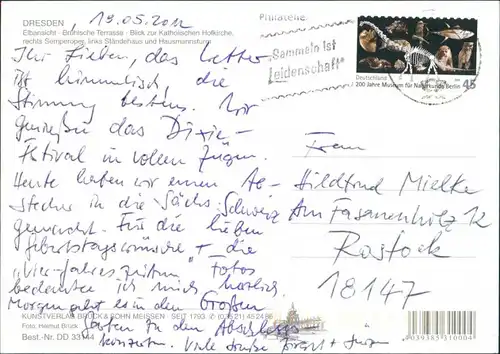 DRESDEN,
Elbansicht · Brühlsche Terrasse · Blick zur Katholischen Hofkirche,
rechts Semperoper, links Ständehaus und Hausmannsturm
19.05.2012
Ihr Lieben, das Wetter
ist himmlisch, die
Stimmung bestens. Wir
genießen das Dixie-
festival in vollen Zügen.
Heute haben wir einen Ab-
stecher in die Sächs. Schweiz
gemacht. Für die lieben
Geburtstagswünsche + die
"Vier-Jahreszeiten" Fotos
bedanke ich mich herzlich.
Morgen geht es in den Großen
Garten zu den Abschluss-
konzerten. Viele Grüße
KUNSTVERLAG BRÜCK & SOHN MEISSEN · SEIT 1793 · ☏ (03521) 45 24 86
Foto: Helmut Brück
Best.-Nr. DD 33144
Philatelie:
„Sammeln ist
Leidenschaft"
Deutschland
200 Jahre Museum für Naturkunde Berlin
45
Frau
Hildtrud Mielke
Am Fasanenholz 12
Rostock
18147
4 039385 310004